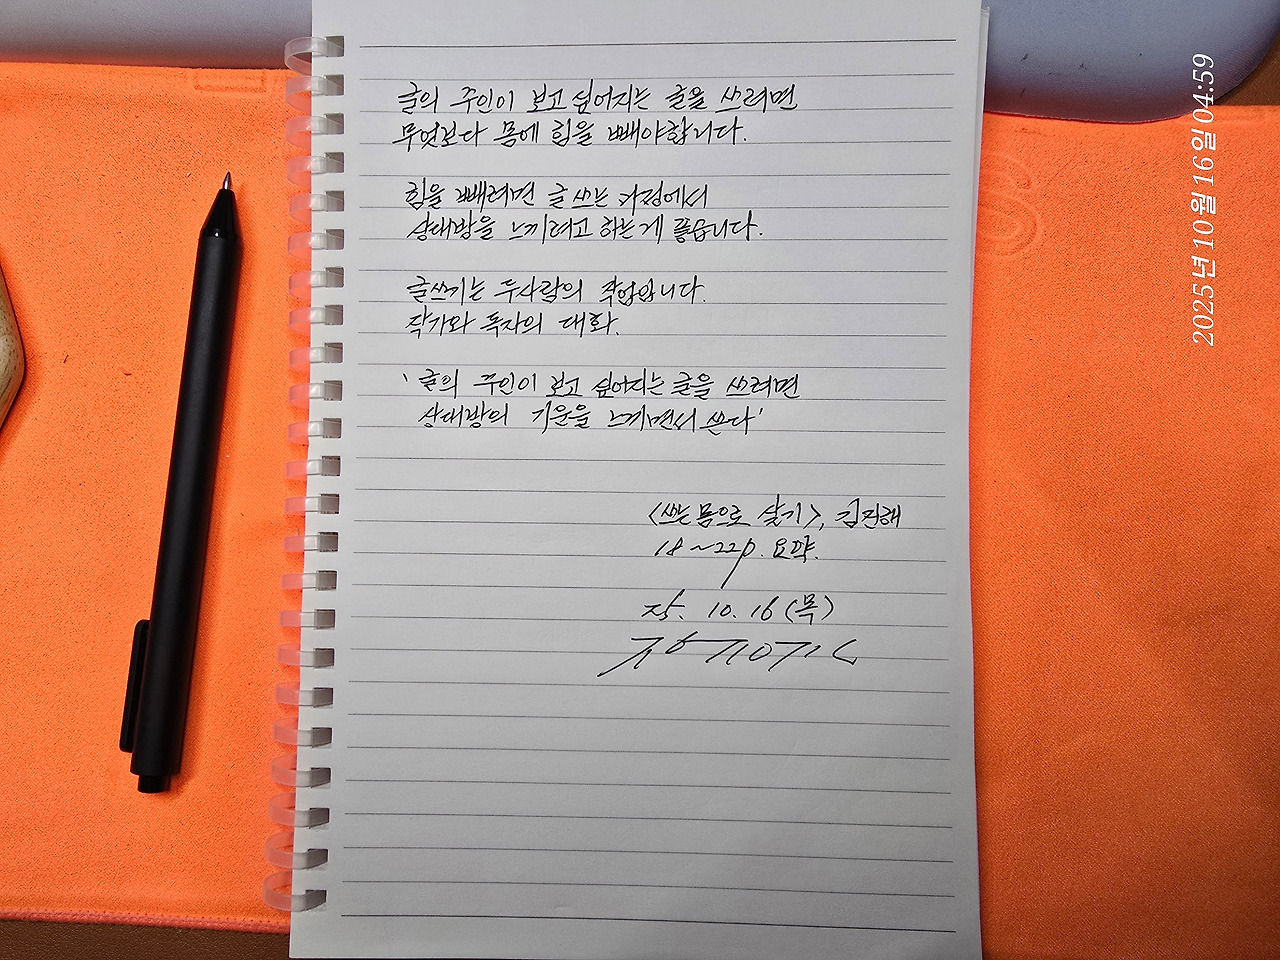 글의 주인이 보고 싶어지는 글을 쓰려면
무엇보다 몸에 힘을 빼야합니다.
힘을 빼려면 글 쓰는 과정에서
상대방을 느끼려고 하는게 좋습니다.
글쓰기는 두사람의 작업입니다.
작가와 독자의 대화.
'글의 주인이 보고 싶어지는 글을 쓰려면
상대방의 기운을 느끼면서 쓴다'
<쓰는 몸으로 살기>, 김진해
18~22p. 요약.
25. 10. 16(목)
2025년 10월 16일 04:59